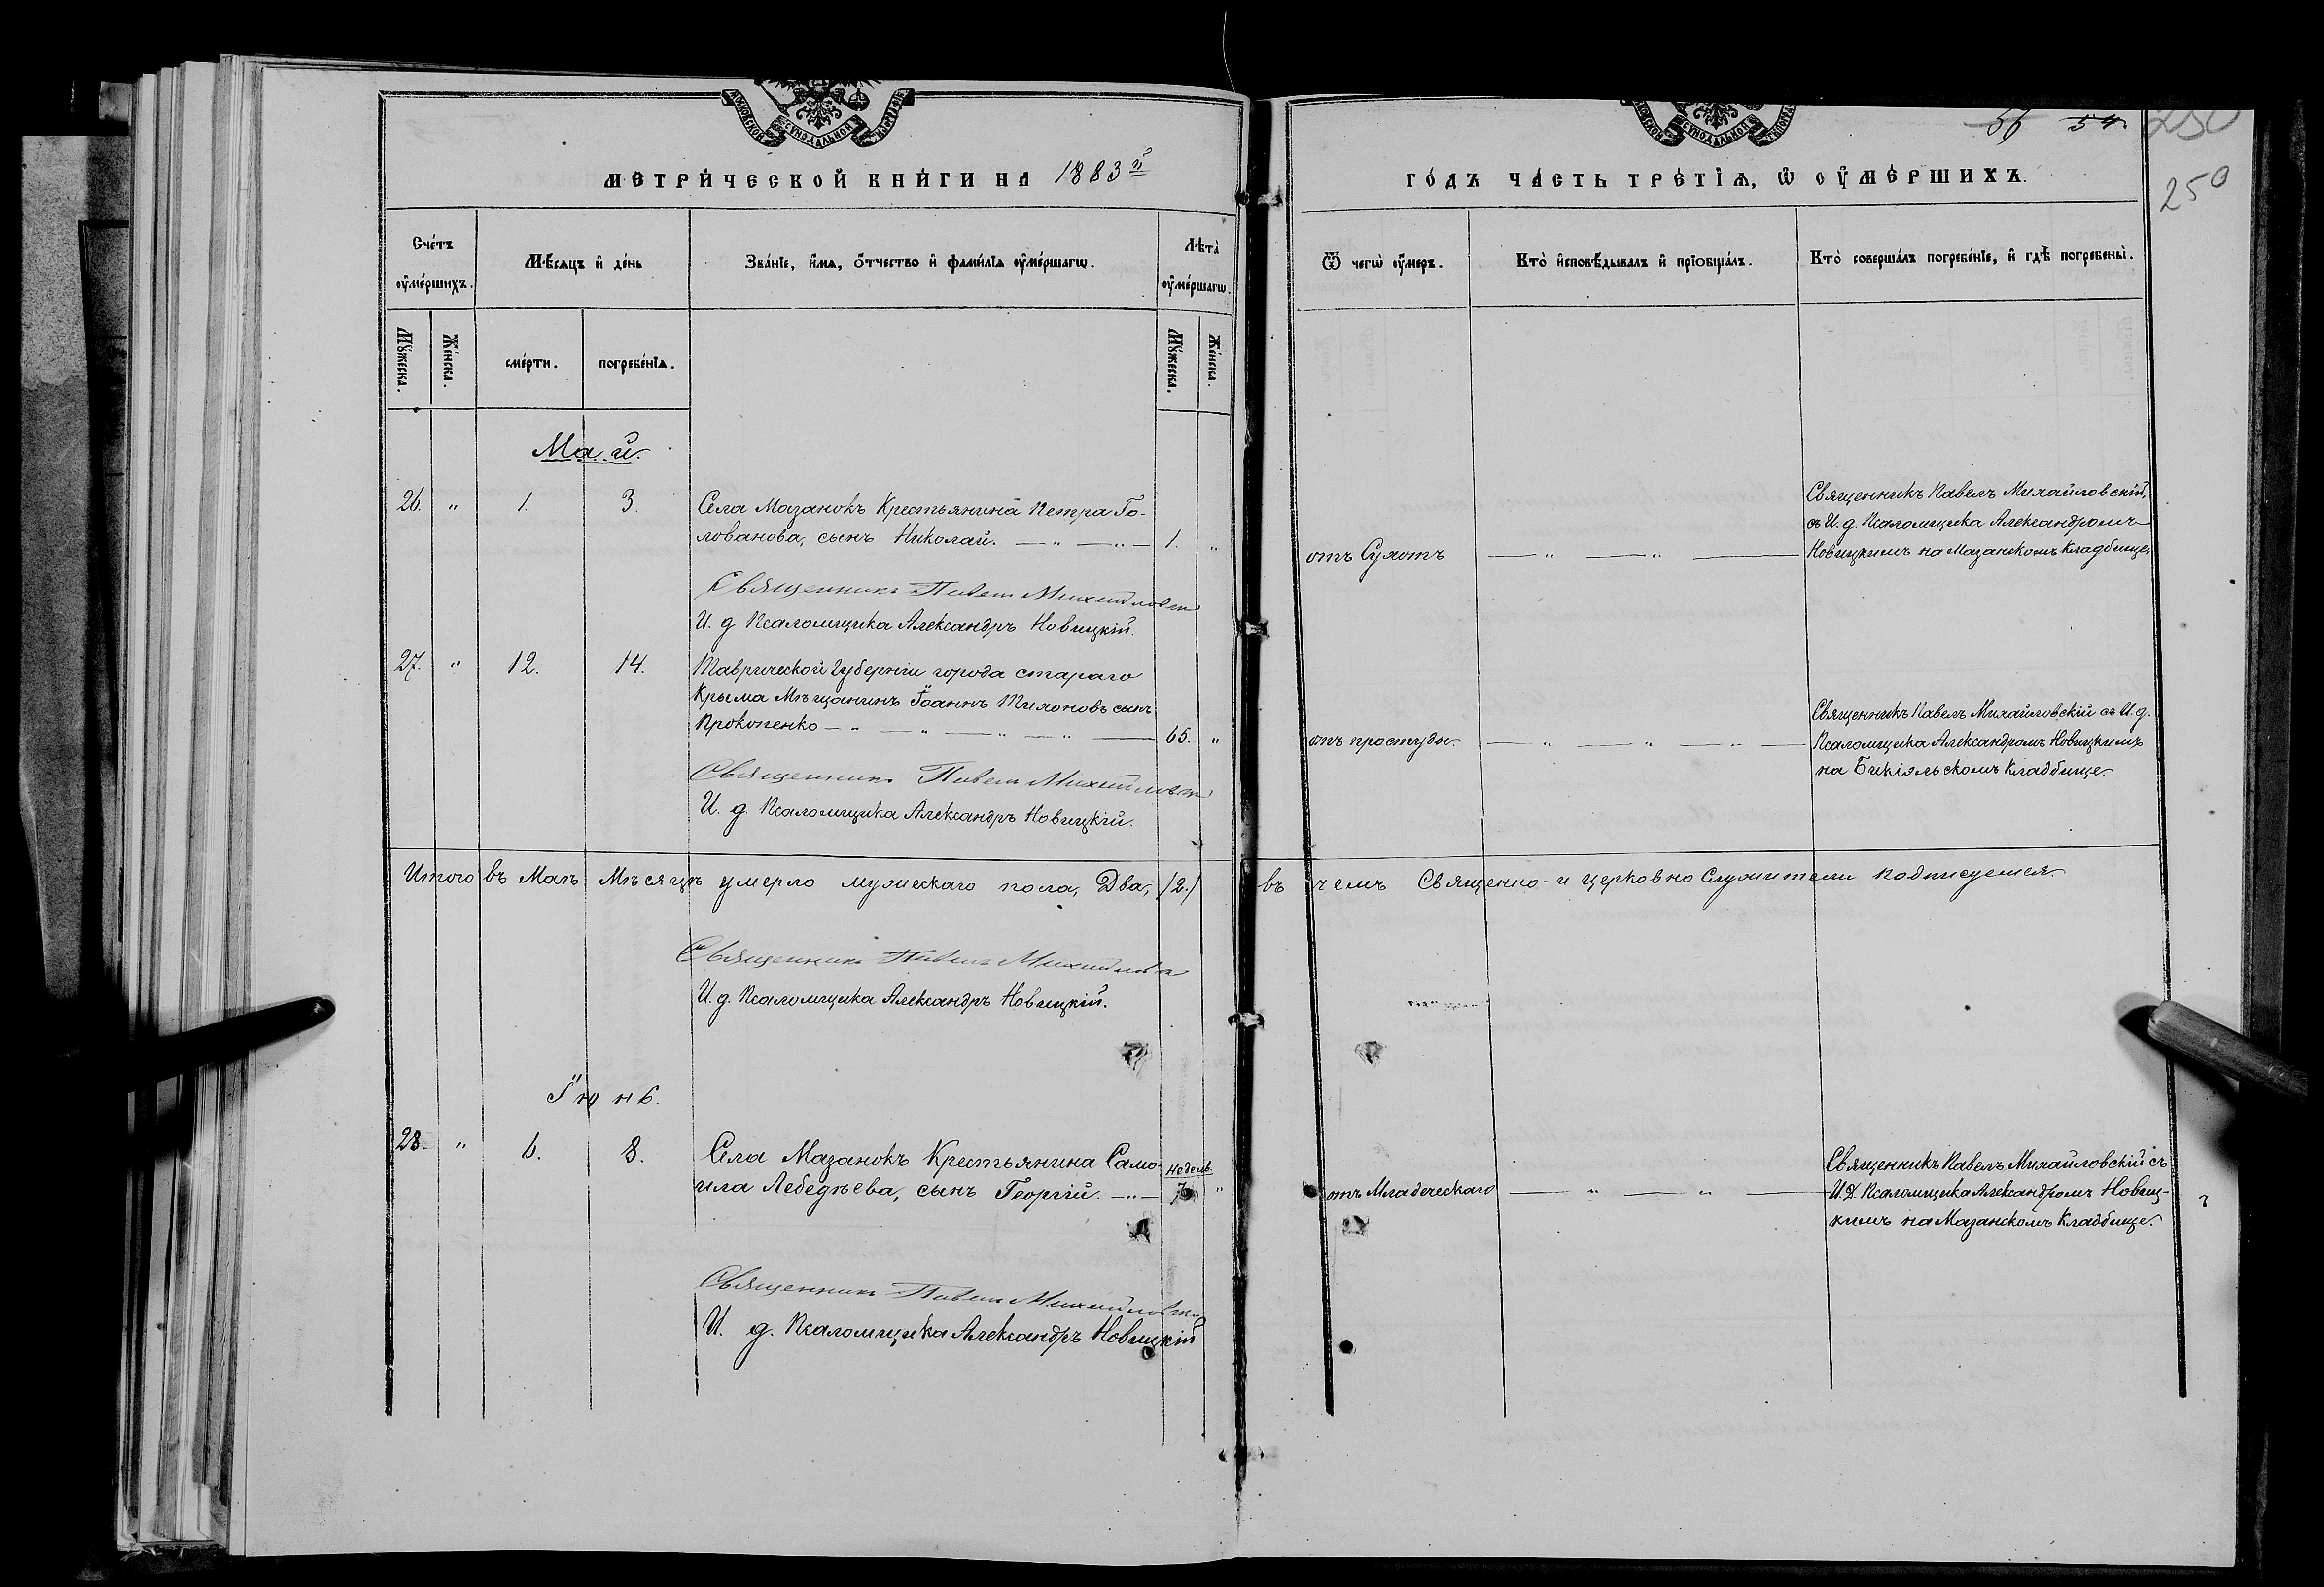 МОСКОВСКОЙ СѴНОДАЛЬНОЙ ТИПОГРАФІИ
МОСКОВСКОЙ СѴНОДАЛЬНОЙ ТИПОГРАФІИ
56 54.
250
250
МЕТРИ́ЧЕСКОЙ КНИ́ГИ НА 1883 й
ГО́ДЪ ЧА́СТЬ ТРЕ́ТІѦ, Ѡ҆ ОУ҆МЕ́РШИХЪ.
Сче́тъ оу҆ме́ршихъ.
Мѣ́сяцъ и҆ де́нь
Зва́нїе, и҆́мя, ѻ҆́тчество и҆ фами́лїя оу҆ме́ршагѡ.
Лѣта̀ оу҆ме́ршагѡ.
Ѿ чегѡ̀ оу҆́меръ.
Кто̀ и҆сповѣ́дывалъ и҆ прїѻбща́лъ.
Кто̀ соверша́лъ погребе́нїе, и҆ гдѣ̀ погребены̀.
Му́жеска.
Же́нска.
сме́рти.
погребе́нїѧ.
Му́жеска.
Же́нска.
Май.
26. " 1. 3. Села Мазанокъ Крестьянина Петра Го-
лованова, сынъ Николай. — " — " — 1. "
отъ Сухотъ — " — " —
Священникъ Павелъ Михайловскій,
съ И. д. Псаломщика Александромъ
Новицкимъ на Мазанскомъ Кладбище.
Священникъ Павелъ Михайловскій
И. д Псаломщика Александръ Новицкій.
27. " 12. 14. Таврической Губерніи города стараго
Крыма Мѣщанинъ Іоаннъ Тихоновъ сынъ
Прокопенко — " — " — " — " — 65. "
отъ простуды. — " — " — " —
Священникъ Павелъ Михайловскій съ И. д.
Псаломщика Александромъ Новицкимъ
на Кладбище.
Священникъ Павелъ Михайловскій
И. д. Псаломщика Александръ Новицкій.
Итого въ Маѣ Мѣсяцѣ умерло мужескаго пола, Два, /2./ въ чемъ Священно- и церковно Служители подписуемся.
Священникъ Павелъ Михайловскій
И. д. Псаломщика Александръ Новицкій.
Іюнь.
28. " 6. 8. Села Мазанокъ Крестьянина Само-
ила Лебедѣева, сынъ Георгій. — " — недель 7 "
отъ Младеческаго — " — " —
Священникъ Павелъ Михайловскій съ
И. Д. Псаломщика Александромъ Новиц-
кимъ на Мазанскомъ Кладбище.
Священникъ Павелъ Михайловскій
И. д. Псаломщика Александръ Новицкій